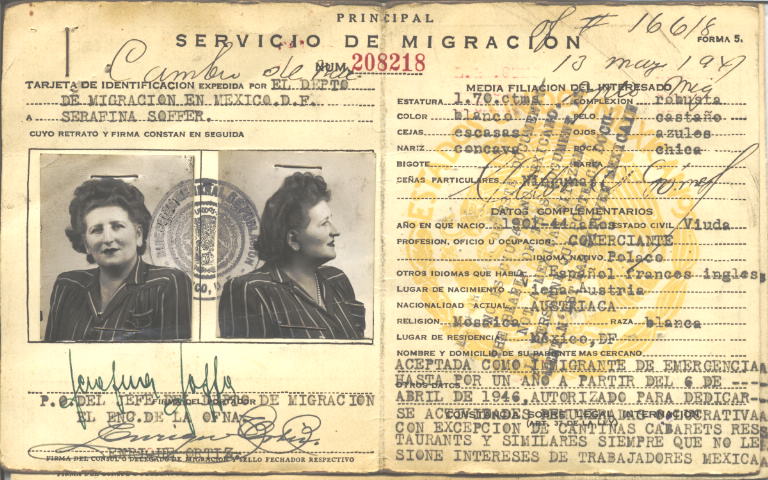 PRINCIPAL
SERVICIO DE MIGRACION
of # 16618
FORMA 5.
13 may 194
Cambio de
NUM. 208218
TARJETA DE IDENTIFICACION EXPEDIDA POR EL DEPTO
DE MIGRACION EN MEXICO.D.F.
A SERAFINA SOFFER.
CUYO RETRATO Y FIRMA CONSTAN EN SEGUIDA
Serafina Soffer
P.O.DEL JEFE DEL DE MIGRACION
EL ENC.DE LA OFNA.
Enrique Ortiz
ENRIQUE ORTIZ.
FIRMA DEL CONSUL O DELEGADO DE MIGRACION Y SELLO FECHADOR RESPECTIVO
MEDIA FILIACION DEL INTERESADO
ESTATURA 1.70.ctms. COMPLEXION robusta
COLOR blanco PELO castaño
CEJAS escasas OJOS azules
NARIZ concava BOCA chica
BIGOTE BARBA
SEÑAS PARTICULARES Ninguna
DATOS COMPLEMENTARIOS
AÑO EN QUE NACIO 1901-44 años ESTADO CIVIL Viuda
PROFESION, OFICIO U OCUPACION COMERCIANTE
IDIOMA NATIVO Polaco
OTROS IDIOMAS QUE HABLA Español frances ingles
LUGAR DE NACIMIENTO iena Austria
NACIONALIDAD ACTUAL AUSTRIACA
RELIGION Mosaica RAZA blanca
LUGAR DE RESIDENCIA México,DF
NOMBRE Y DOMICILIO DE SU PARIENTE MAS CERCANO
ACEPTADA COMO INMIGRANTE DE EMERGENCIA
HASTA POR UN AÑO A PARTIR DEL 6 DE ----
OTROS DATOS
ABRIL DE 1946, AUTORIZADO PARA DEDICAR-
SE A
CONSTANCIAS SOBRE LEGAL INTERNACION
(ART. 37 DE LA LEY)
CON EXCEPCION DE CANTINAS CABARETS RES
TAURANTS Y SIMILARES SIEMPRE QUE NO LE
SIONE INTERESES DE TRABAJADORES MEXICA